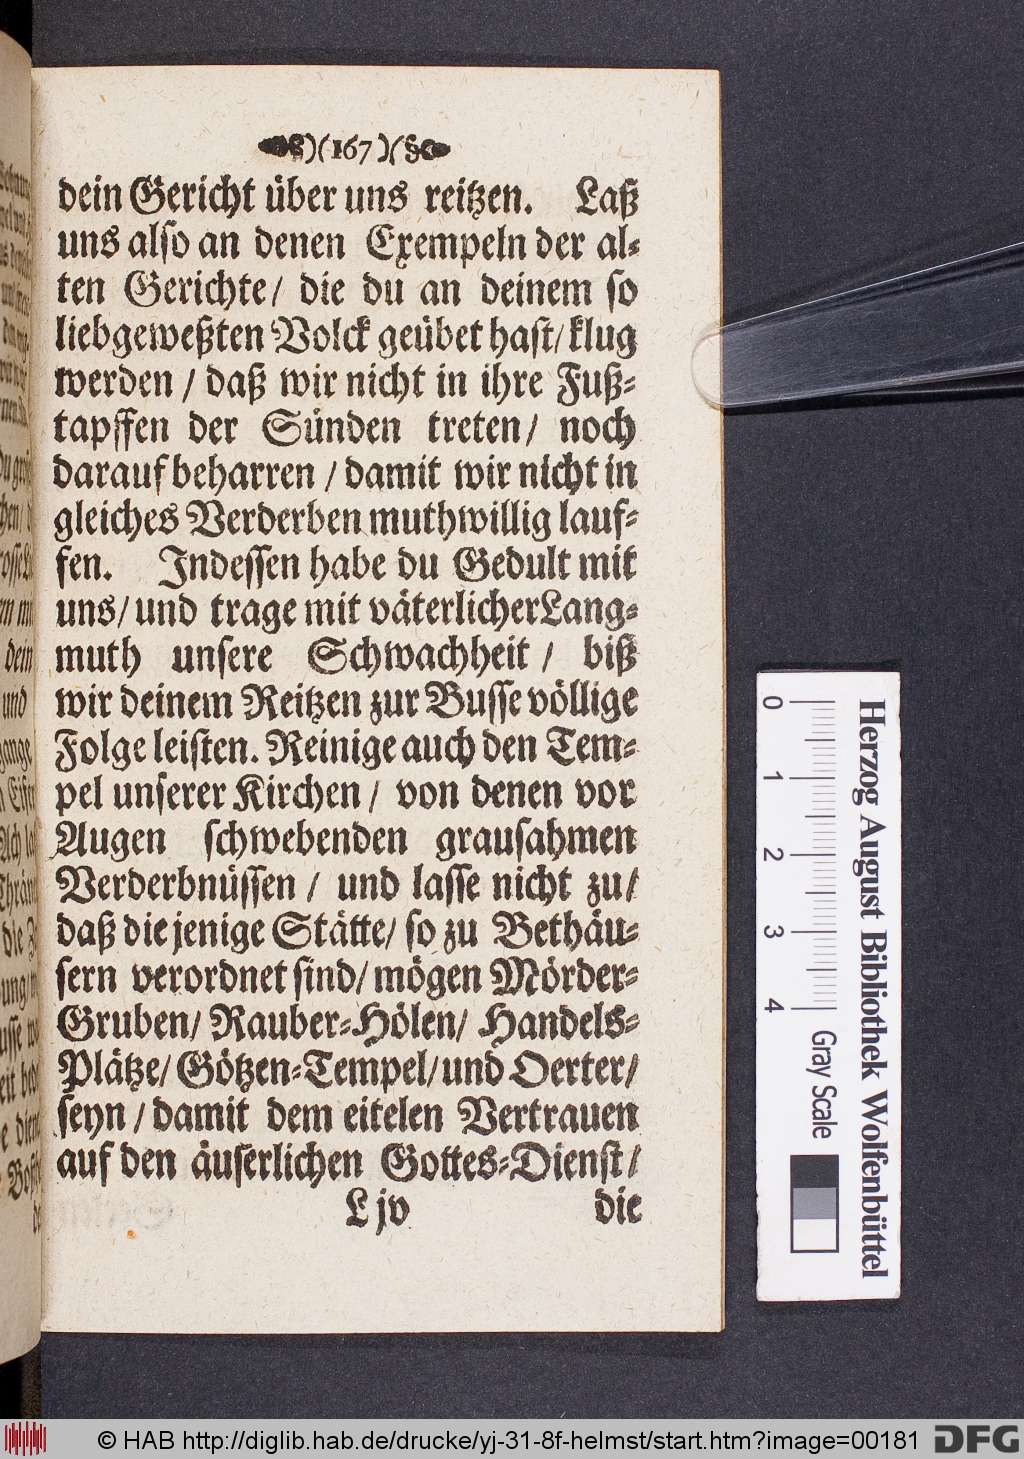 )(167)(
dein Gericht über uns reitzen. Laß
uns also an denen Exempeln der al-
ten Gerichte/ die du an deinem so
liebgeweßten Volck geübet hast/ klug
werden / daß wir nicht in ihre Fuß-
tapffen der Sünden treten/ noch
darauf beharren / damit wir nicht in
gleiches Verderben muthwillig lauf-
fen. Indessen habe du Gedult mit
uns/ und trage mit väterlicher Lang-
muth unsere Schwachheit / biß
wir deinem Reitzen zur Busse völlige
Folge leisten. Reinige auch den Tem-
pel unserer Kirchen / von denen vor
Augen schwebenden grausahmen
Verderbnüssen / und lasse nicht zu/
daß die jenige Stätte/ so zu Bethäu-
sern verordnet sind/ mögen Mörder-
Gruben/ Rauber-Hölen/ Handels-
Plätze/ Götzen-Tempel/ und Oerter/
seyn / damit dem eitelen Vertrauen
auf den äuserlichen Gottes-Dienst/
L jv die
Herzog August Bibliothek Wolfenbüttel
0 1 2 3 4 Gray Scale
© HAB http://diglib.hab.de/drucke/yj-31-8f-helmst/start.htm?image=00181 DFG